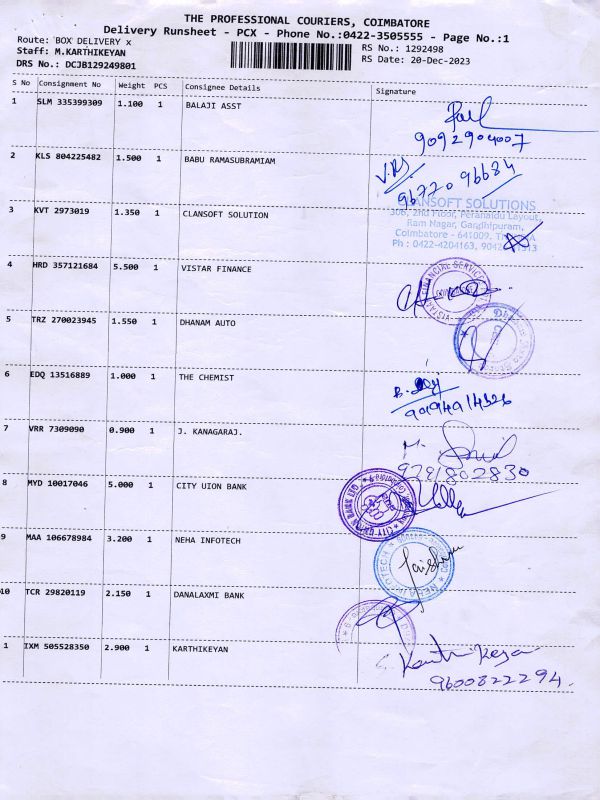 THE PROFESSIONAL COURIERS, COIMBATORE
Delivery Runsheet - PCX - Phone No.:0422-3505555 - Page No.:1
Route: 'BOX DELIVERY x
Staff: M.KARTHIKEYAN
DRS No.: DCJB129249801
RS No.: 1292498
RS Date: 20-Dec-2023
S No Consignment No Weight PCS Consignee Details Signature
1 SLM 335399309 1.100 1 BALAJI ASST
9092904007
2 KLS 804225482 1.500 1 BABU RAMASUBRAMIAM
96770 96684
3 KVT 2973019 1.350 1 CLANSOFT SOLUTION
CLANSOFT SOLUTIONS
306, 2nd Floor, Perainaidu Layout,
Ram Nagar, Gandhipuram,
Coimbatore - 641009,
Ph : 0422-4204163,
4 HRD 357121684 5.500 1 VISTAR FINANCE
5 TRZ 270023945 1.550 1 DHANAM AUTO
6 EDQ 13516889 1.000 1 THE CHEMIST
7 VRR 7309090 0.900 1 J. KANAGARAJ.
9291802830
8 MYD 10017046 5.000 1 CITY UION BANK
CITY UNION BANK LTD
9 MAA 106678984 3.200 1 NEHA INFOTECH
NEHA INFOTECH
10 TCR 29820119 2.150 1 DANALAXMI BANK
1 IXM 505528350 2.900 1 KARTHIKEYAN
9600822294